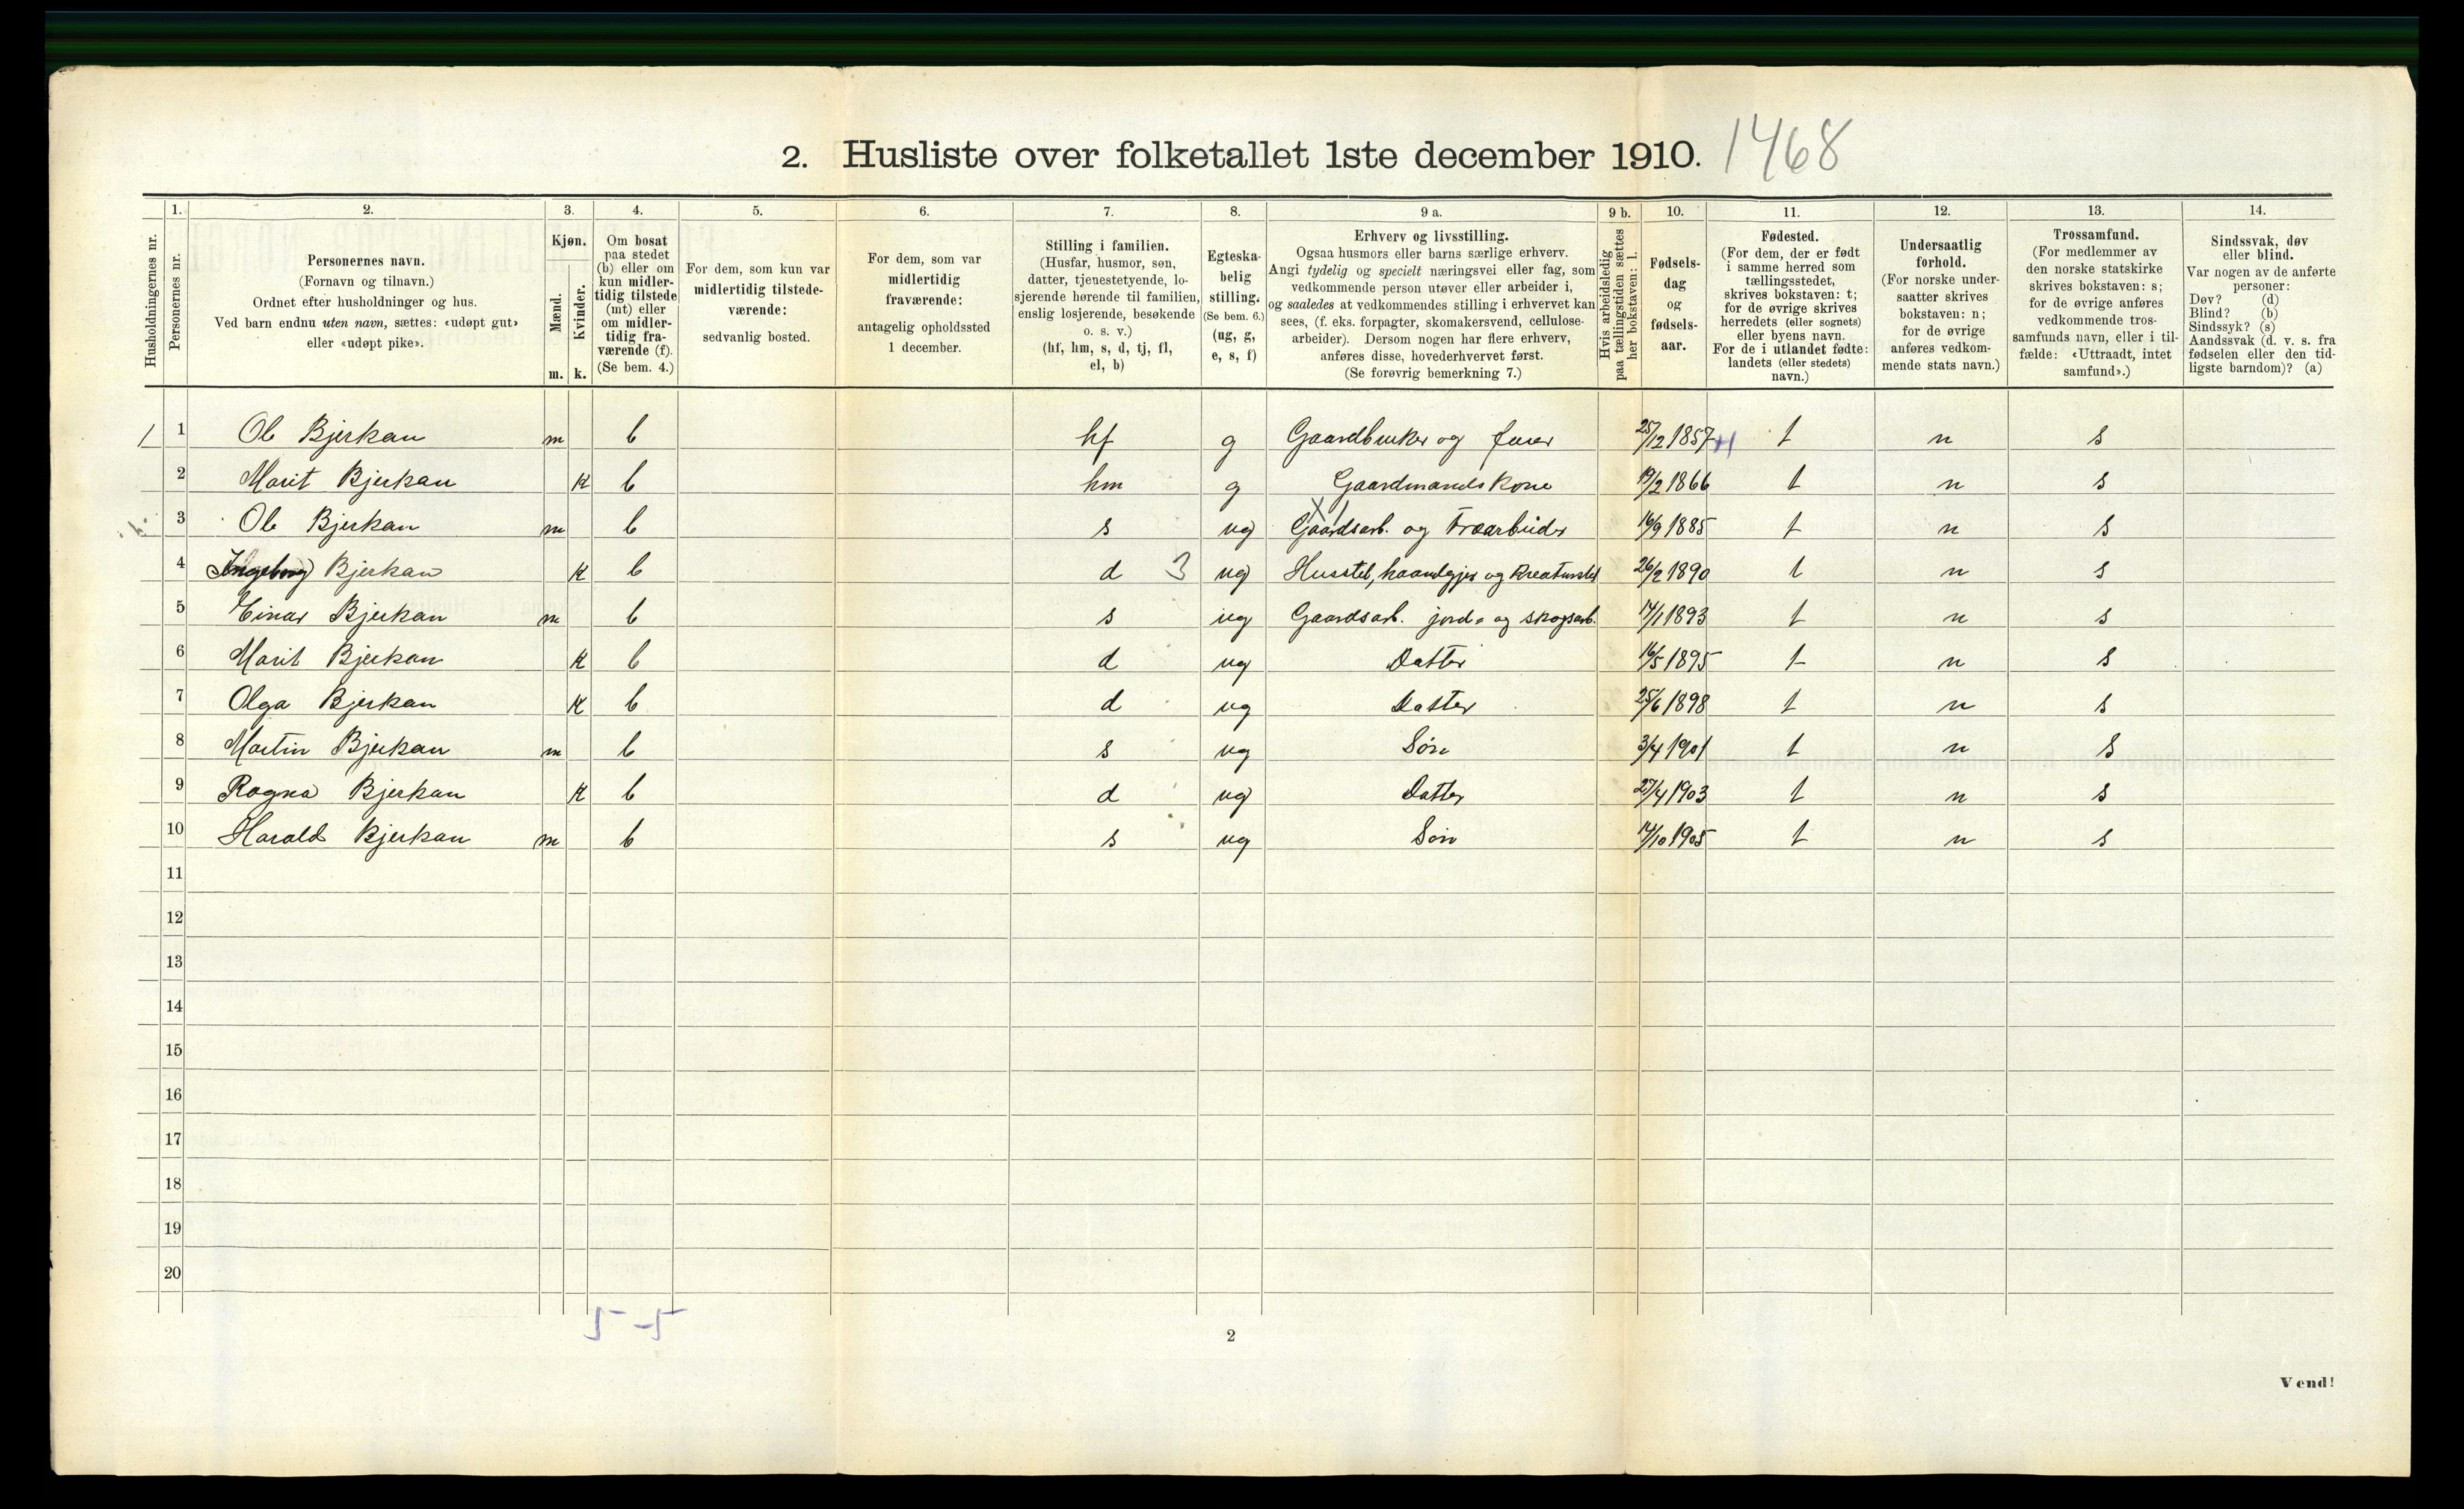 2. Husliste over folketallet 1ste december 1910. 1468
Husholdningernes nr.
1. Personernes nr.
2. Personernes navn. (Fornavn og tilnavn.) Ordnet efter husholdninger og hus. Ved barn endnu uten navn, sættes: «udøpt gut» eller «udøpt pike».
3. Kjøn. Mænd. m. Kvinder. k.
4. Om bosat paa stedet (b) eller om kun midlertidig tilstede (mt) eller om midlertidig fraværende (f). (Se bem. 4.)
5. For dem, som kun var midlertidig tilstedeværende: sedvanlig bosted.
6. For dem, som var midlertidig fraværende: antagelig opholdssted 1 december.
7. Stilling i familien. (Husfar, husmor, søn, datter, tjenestetyende, losjerende hørende til familien, enslig losjerende, besøkende o. s. v.) (hf, hm, s, d, tj, fl, el, b)
8. Egteskabelig stilling. (Se bem. 6.) (ug, g, e, s, f)
9 a. Erhverv og livsstilling. Ogsaa husmors eller barns særlige erhverv. Angi tydelig og specielt næringsvei eller fag, som vedkommende person utøver eller arbeider i, og saaledes at vedkommendes stilling i erhvervet kan sees, (f. eks. forpagter, skomakersvend, cellulosearbeider). Dersom nogen har flere erhverv, anføres disse, hovederhvervet først. (Se forøvrig bemerkning 7.)
9 b. Hvis arbeidsledig paa tællingstiden sættes her bokstaven: l.
10. Fødselsdag og fødselsaar.
11. Fødested. (For dem, der er født i samme herred som tællingsstedet, skrives bokstaven: t; for de øvrige skrives herredets (eller sognets) eller byens navn. For de i utlandet fødte: landets (eller stedets) navn.)
12. Undersaatlig forhold. (For norske undersaatter skrives bokstaven: n; for de øvrige anføres vedkommende stats navn.)
13. Trossamfund. (For medlemmer av den norske statskirke skrives bokstaven: s; for de øvrige anføres vedkommende trossamfunds navn, eller i tilfælde: «Uttraadt, intet samfund».)
14. Sindssvak, døv eller blind. Var nogen av de anførte personer: Døv? (d) Blind? (b) Sindssyk? (s) Aandssvak (d. v. s. fra fødselen eller den tidligste barndom)? (a)
1 1 Ole Bjerkan m b hf g Gaardbruker og furer 25/12 1857 t n s
2 Marit Bjerkan k b hm g Gaardmandskone 19/2 1866 t n s
3 Ole Bjerkan m b s ug Gaardsarb. og Træarbeider 16/9 1885 t n s
4 Ingeborg Bjerkan k b d 3 ug Husstel, haandgjer og kreaturstel 26/2 1890 t n s
5 Einar Bjerkan m b s ug Gaardsarb. jord- og skogsarb. 14/1 1893 t n s
6 Marit Bjerkan k b d ug Datter 16/5 1895 t n s
7 Olga Bjerkan k b d ug Datter 25/6 1898 t n s
8 Martin Bjerkan m b s ug Søn 3/4 1901 t n s
9 Ragna Bjerkan k b d ug Datter 27/4 1903 t n s
10 Harald Bjerkan m b s ug Søn 14/10 1905 t n s
11
12
13
14
15
16
17
18
19
20
5-5
2
Vend!